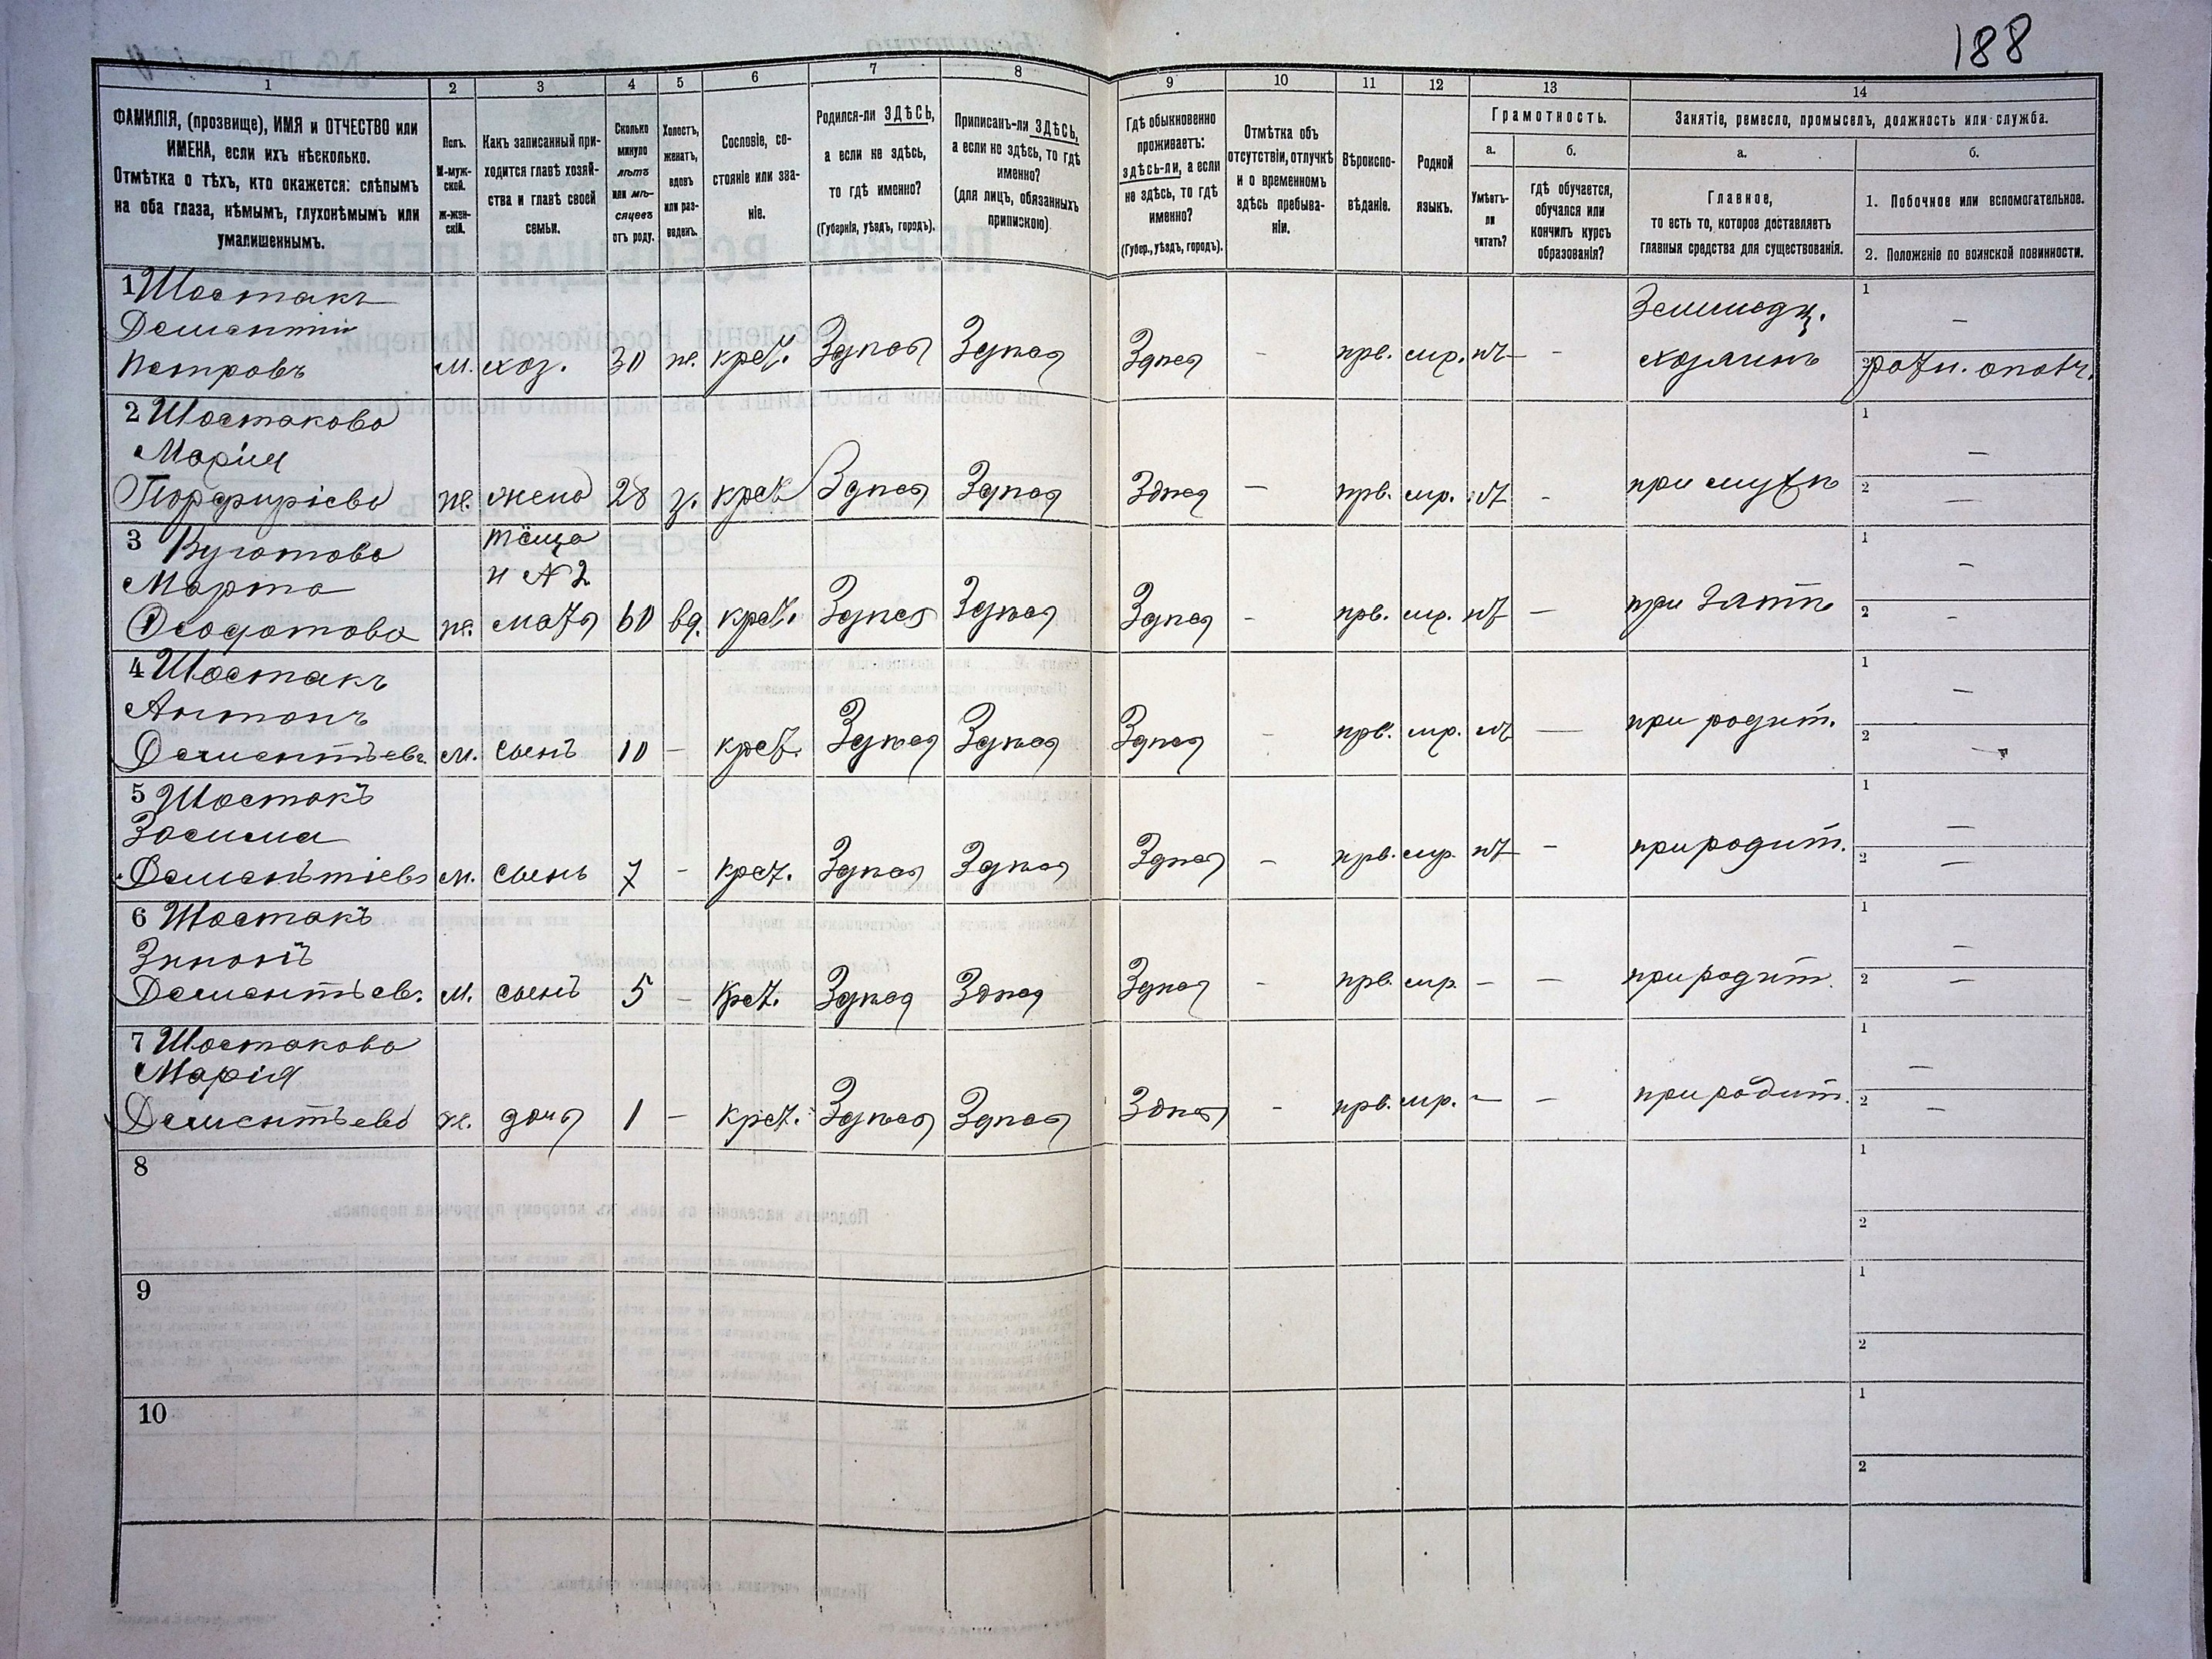 188
1 2 3 4 5 6 7 8 9 10 11 12 13 14
ФАМИЛІЯ, (прозвище), ИМЯ и ОТЧЕСТВО или
ИМЕНА, если ихъ нѣсколько.
Отмѣтка о тѣхъ, кто окажется: слѣпымъ
на оба глаза, нѣмымъ, глухонѣмымъ или
умалишеннымъ.
Полъ.
М-муж-
ской.
ж-жен-
скій.
Какъ записанный при-
ходится главѣ хозяй-
ства и главѣ своей
семьи.
Сколько
минуло
лѣтъ
или мѣ-
сяцевъ
отъ роду.
Холостъ,
женатъ,
вдовъ
или раз-
веденъ.
Сословіе, со-
стояніе или зва-
ніе.
Родился-ли ЗДѢСЬ,
а если не здѣсь,
то гдѣ именно?
(Губернія, уѣздъ, городъ).
Приписанъ-ли ЗДѢСЬ,
а если не здѣсь, то гдѣ
именно?
(для лицъ, обязанныхъ
припискою)
Гдѣ обыкновенно
проживаетъ:
здѣсь-ли, а если
не здѣсь, то гдѣ
именно?
(Губер., уѣздъ, городъ).
Отмѣтка объ
отсутствіи, отлучкѣ
и о временномъ
здѣсь пребыва-
ніи.
Вѣроиспо-
вѣданіе.
Родной
языкъ.
Грамотность.
а.
Умѣетъ-
ли
читать?
б.
гдѣ обучается,
обучался или
кончилъ курсъ
образованія?
Занятіе, ремесло, промыселъ, должность или служба.
а.
Главное,
то есть то, которое доставляетъ
главныя средства для существованія.
б.
1. Побочное или вспомогательное.
2. Положеніе по воинской повинности.
1 Шостакъ
Дементій
Петровъ м. хоз. 30 ж. крест. Здѣсь Здѣсь Здѣсь - прв. мр. нѣт - Земледѣл. хозяинъ 1 - 2 ратн. ополч.
2 Шостакова
Марія
Порфиріева ж. жена 28 з. крест. Здѣсь Здѣсь Здѣсь - прв. мр. нѣт - при мужѣ 1 - 2 -
3
Марта
Ѳеодотова ж. тёща и № 2 мать 60 вд. крест. Здѣсь Здѣсь Здѣсь - прв. мр. нѣт - при зятѣ 1 - 2 -
4 Шостакъ
Антонъ
Дементьевъ м. сынъ 10 - крест. Здѣсь Здѣсь Здѣсь - прв. мр. нѣт - при родит. 1 - 2 -
5 Шостакъ
Зосима
Дементіевъ м. сынъ 7 - крест. Здѣсь Здѣсь Здѣсь - прв. мр. нѣт - при родит. 1 - 2 -
6 Шостакъ
Дементьевъ м. сынъ 5 - крест. Здѣсь Здѣсь Здѣсь - прв. мр. - - при родит. 1 - 2 -
7 Шостакова
Марія
Дементьева ж. дочь 1 - крест. Здѣсь Здѣсь Здѣсь - прв. мр. - - при родит. 1 - 2 -
8 1 2
9 1 2
10 1 2